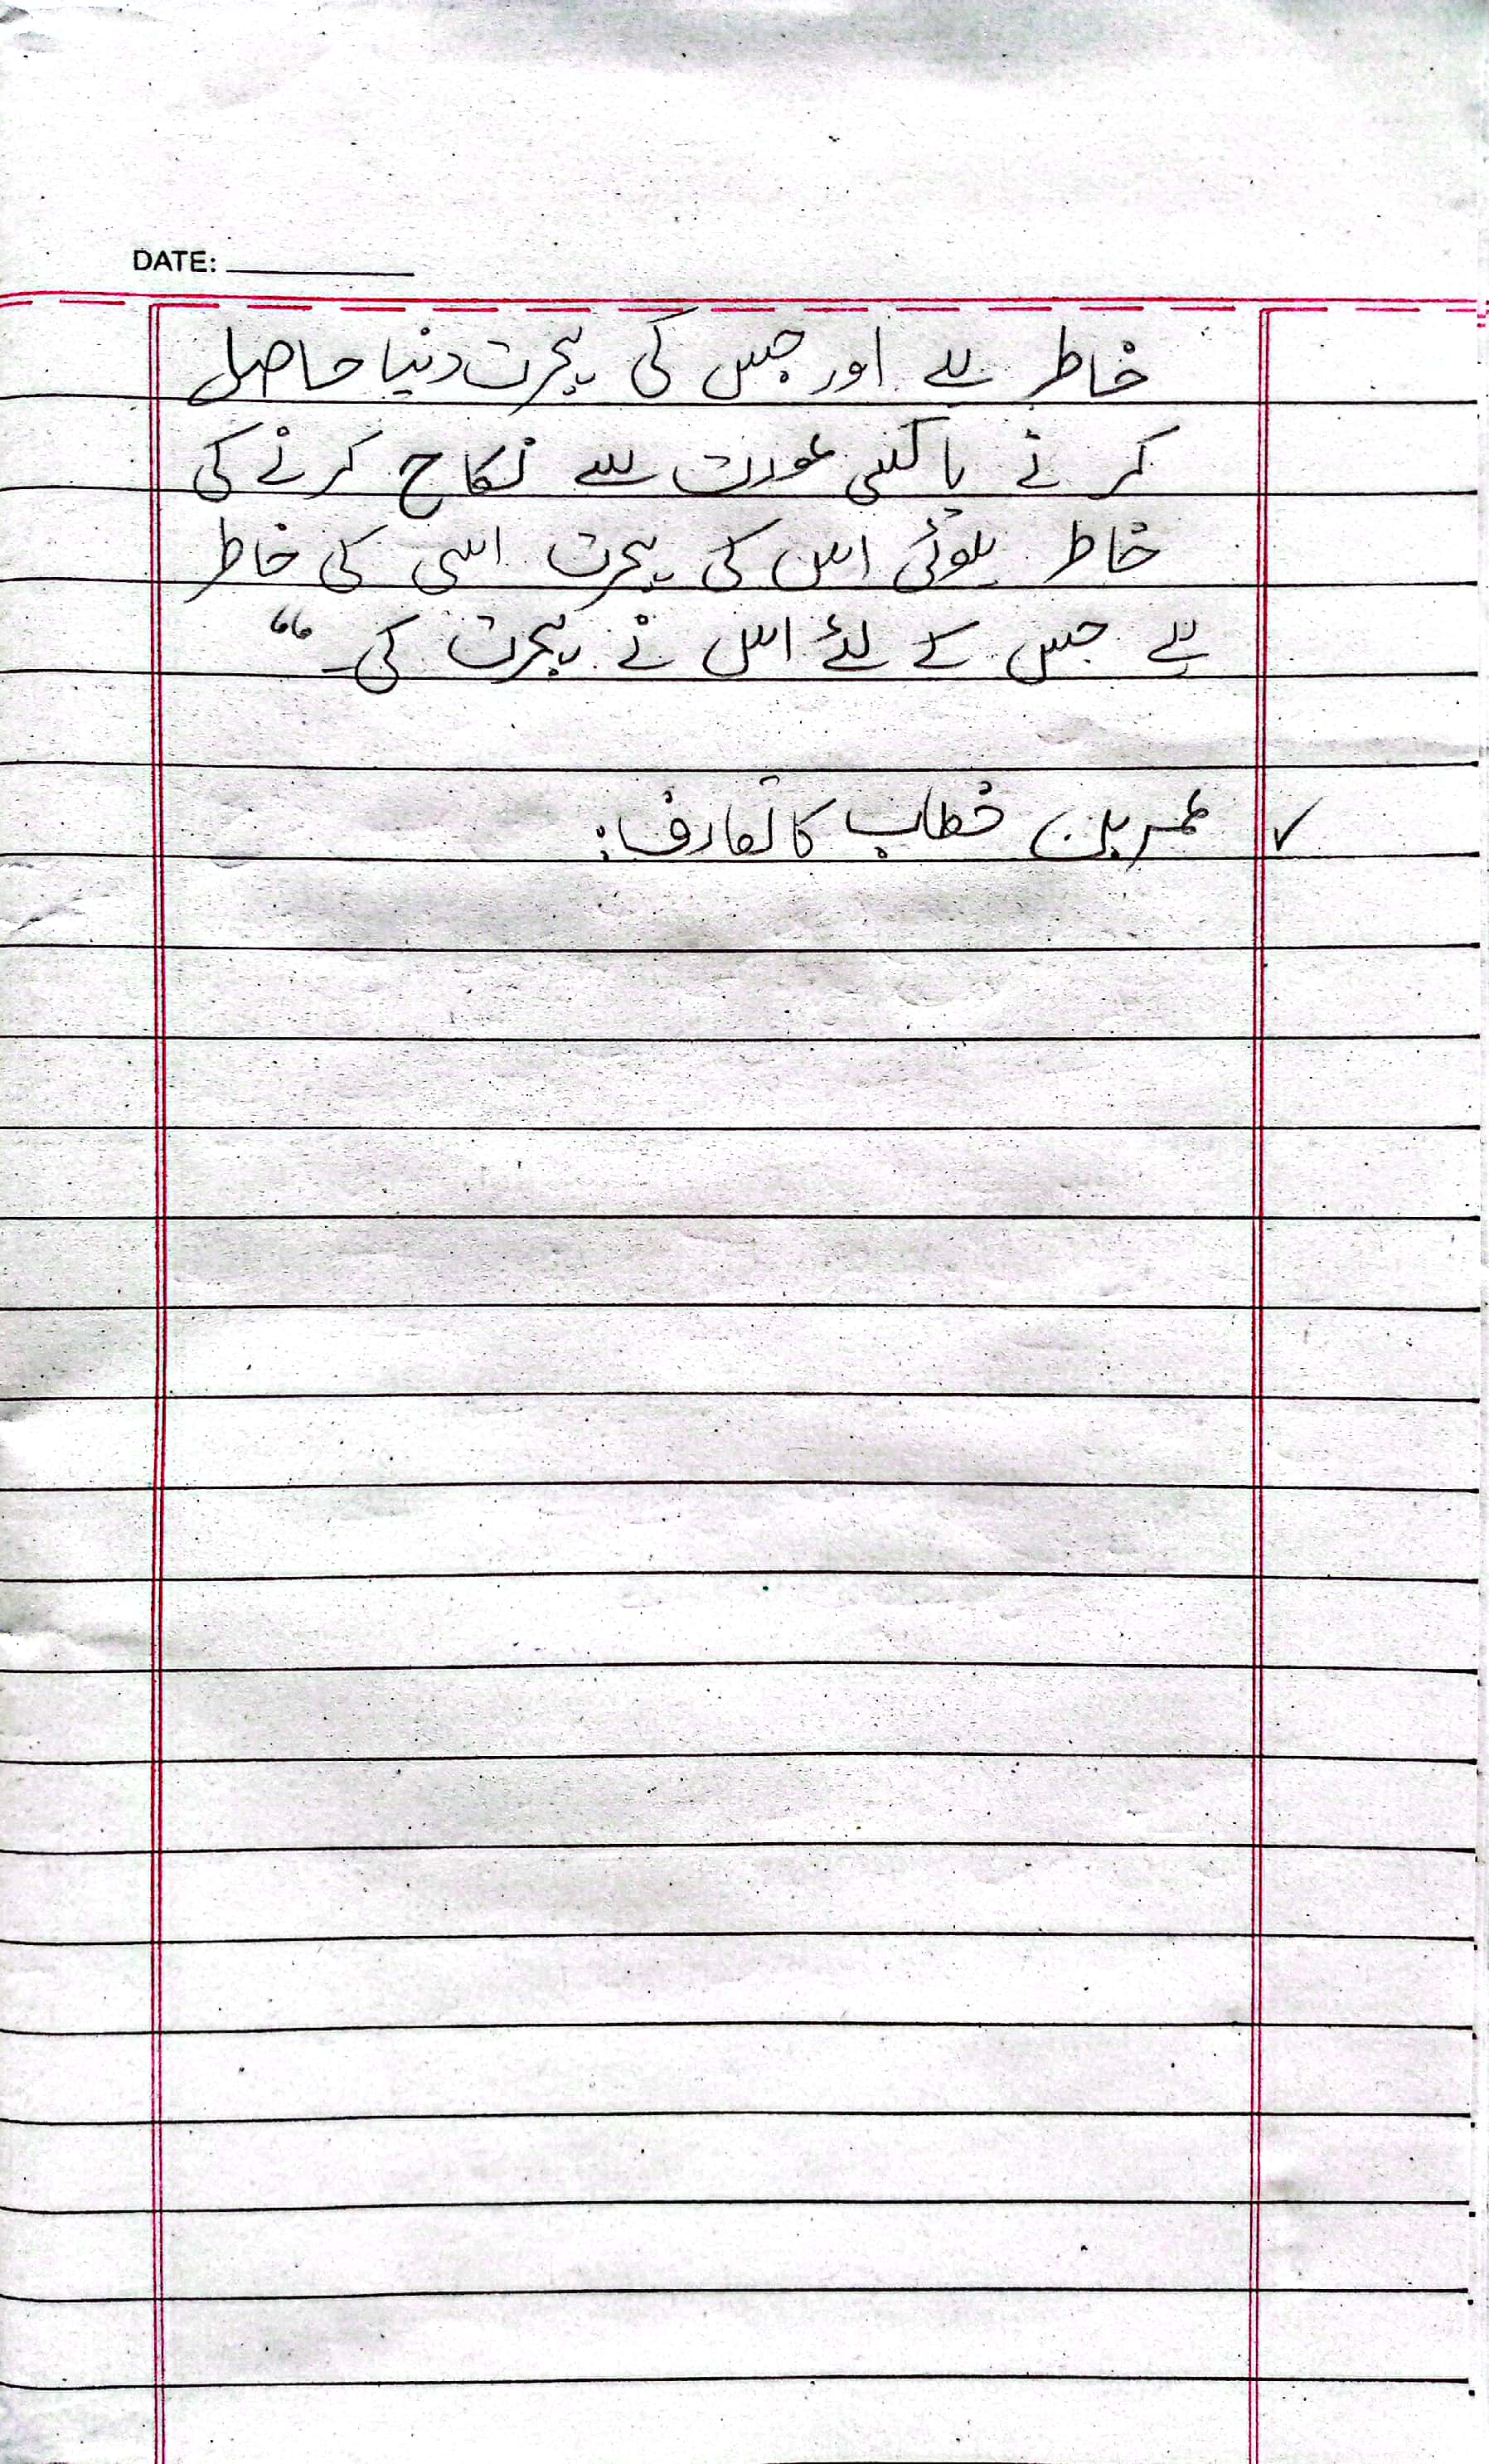 DATE:
خاطر ہے اور جس کی ہجرت دنیا حاصل
کرنے یا کسی عورت سے نکاح کرنے کی
خاطر ہوئی اس کی ہجرت اسی کی خاطر
ہے جس کے لئے اس نے ہجرت کی۔“
✓ عمر بن خطاب کا تعارف: